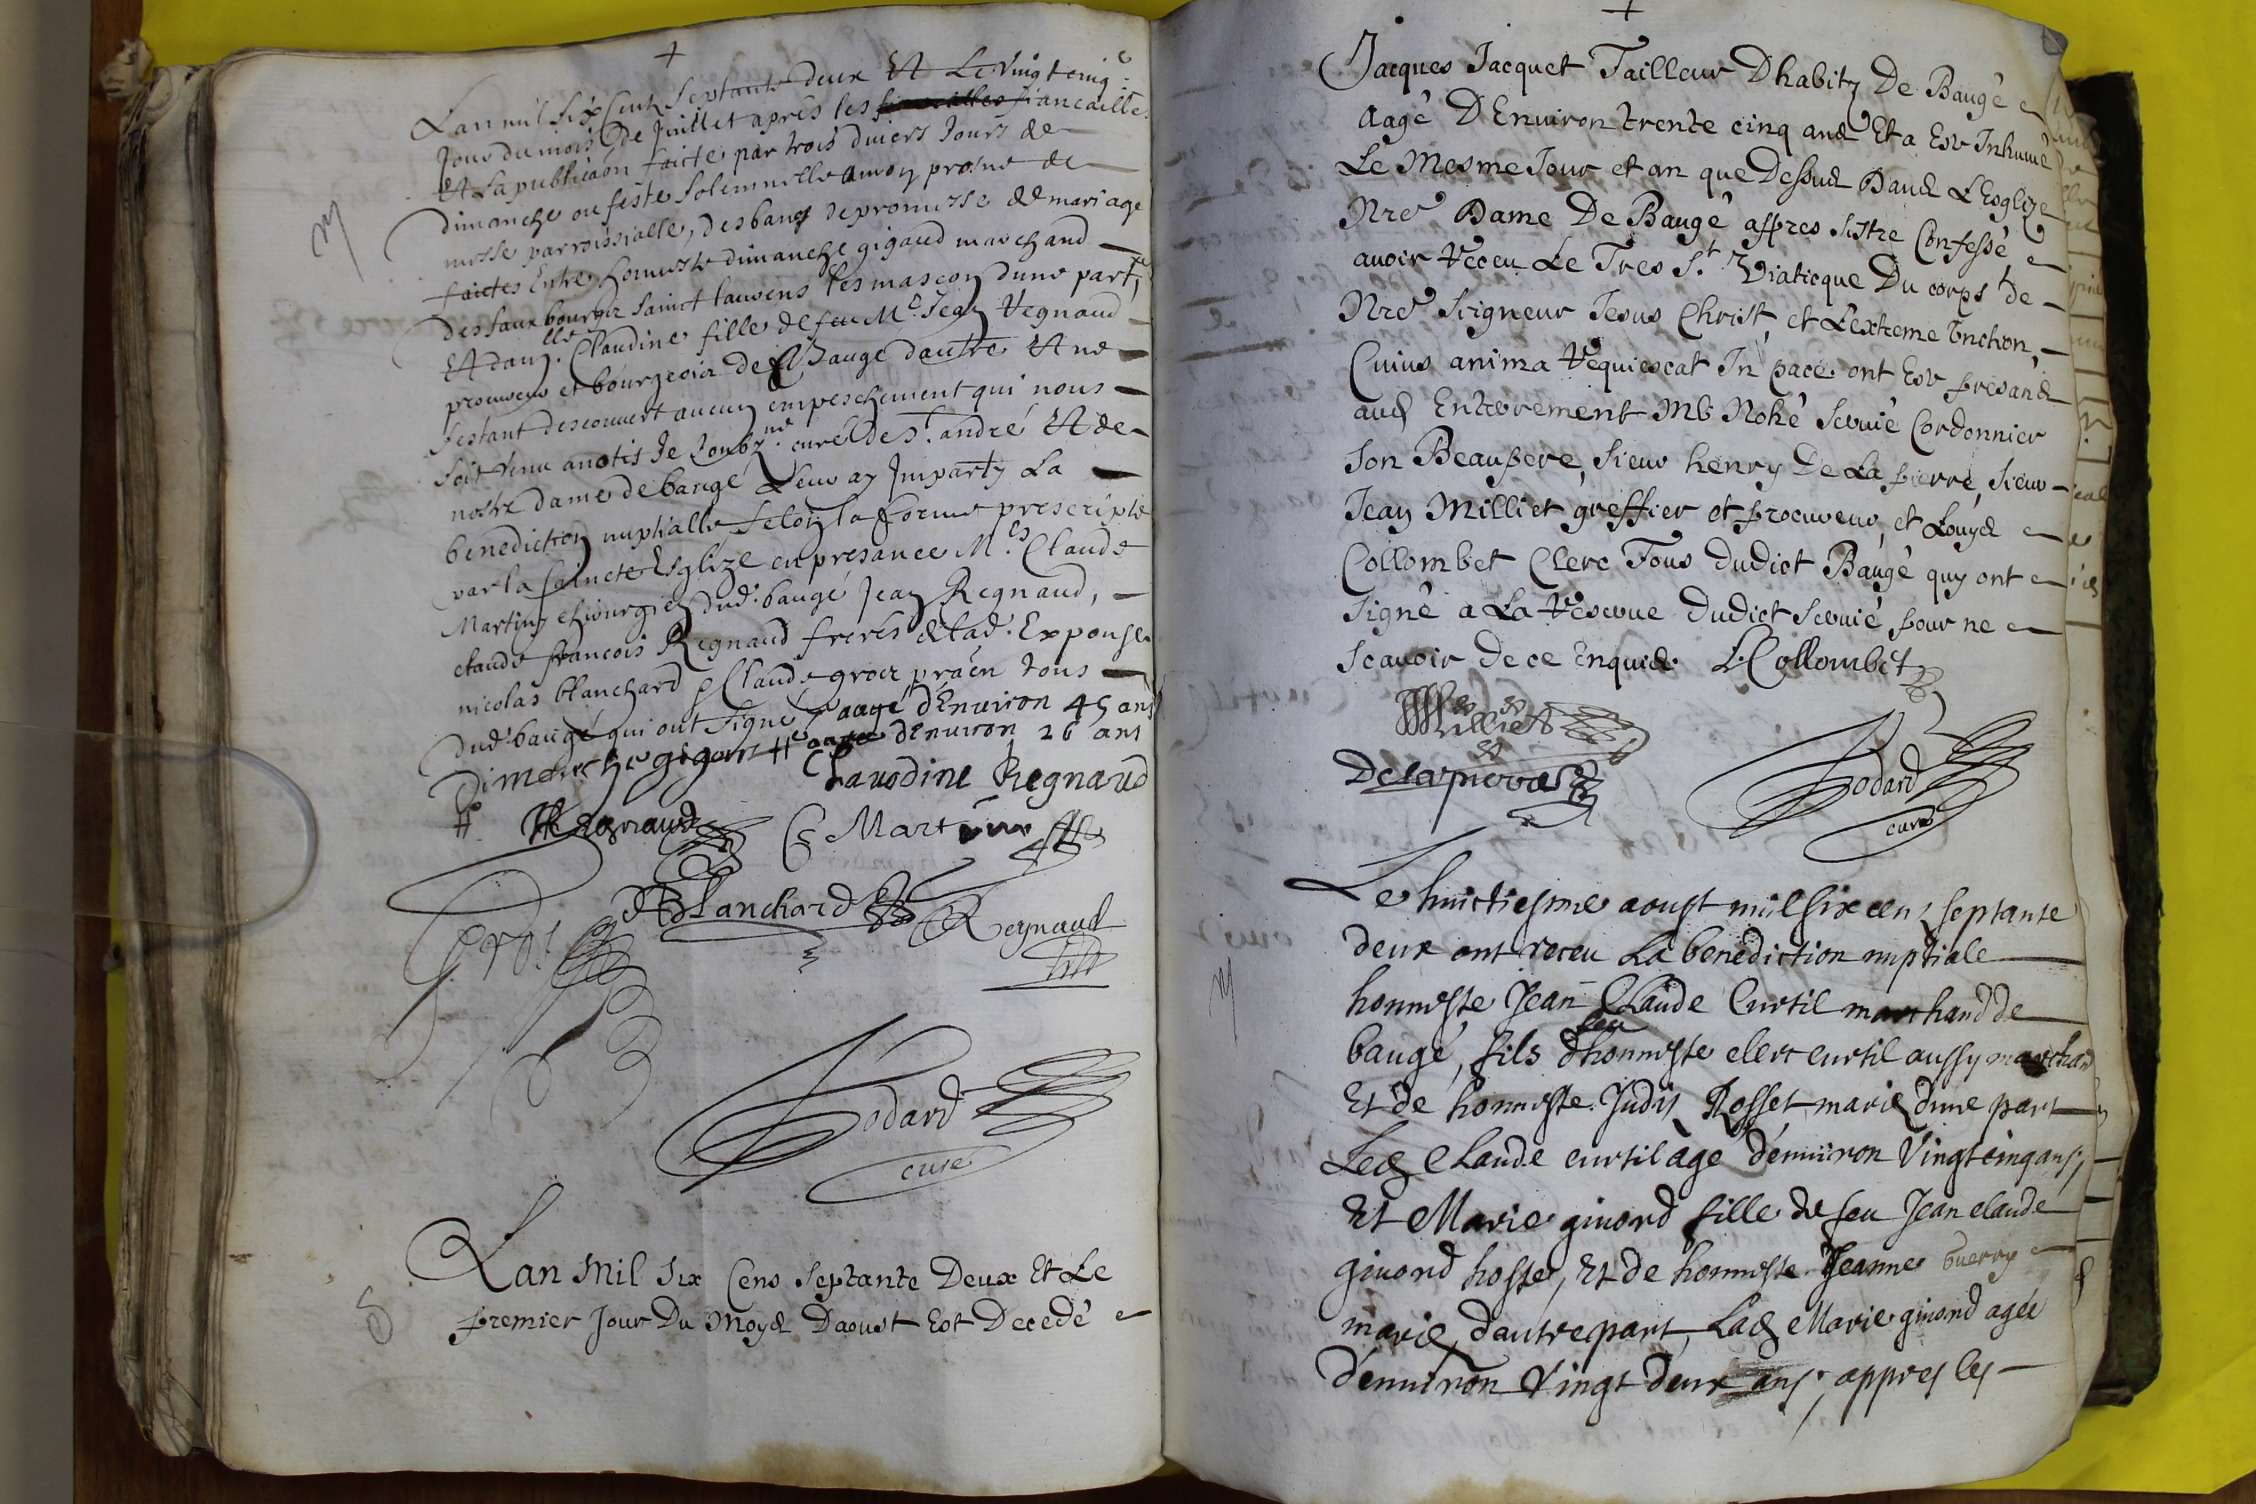 Lan mil six centz septante deux Et Le vingt cinq.e
Jour du mois De Juillet après les fiancailles
Et La publicaon faicte par trois divers Jours de
dimanche ou feste solemnelle au moy prosne de
messe parroissialle, des bans de promesse de mariage
faictes Entre honneste dimanche gigaud marchand
des faux bourgz Sainct laurens les mascon dune part,
Et dam.lle Claudine fille de feu M.e Jean Regnaud
procureur et bourgeois de Baugé dautre Et ne
sestant descouvert aucun empeschement qui nous
soit venu a notis Je soubz.ne curé de S.t andré Et de
nostre dame de baugé Leur ay Imparty La
benediction nuptialle selon la forme prescripte
par la saincte Esglize en presance M.es Claude
Martin chirurgien dud. baugé Jean Regnaud,
claude francois Regnaud freres de lad. Expouse
nicolas blanchard Claude gros pråen tous
dud. baugé qui ont signé / aagé dEnviron 45 ans
Dimanche gigaud # aagée dEnviron 26 ans
Claudine Regnaud
# Regnaud C Martin
N Blanchard Regnaud
Gros
Godard
curé
Lan Mil Six Cens Septante Deux Et Le
premier Jour Du Moys Daoust Est Decedé
Jacques Jacquet Tailleur Dhabitz De Baugé
Aagé DEnviron trente cinq ans Et a Esté Inhumé
Le Mesme Jour et an que Dessus Dans LEsglize
Nre Dame De Baugé appres sestre Confessé
avoir Receu Le Tres S.t Viaticque Du corps de
Nre Seigneur Jesus Christ, et Lextreme Onction,
Cuius anima Requiescat In pace. ont Esté presans
aud Enterement M.e Nohé Scevié Cordonnier
Son Beaupere, Sieur henry De La pierre, Sieur
Jean Milliet greffier et procureur, et Louys
Collombet Clerc Tous Dudict Baugé quy ont
signé a La Reserve Dudict Scevié pour ne
Scavoir De ce Enquis. L. Collombet
Milliet
Delapierre
Godard
curé
Le huictiesme aoust mil six cens septante
deux ont receu La benediction nuptiale
honneste Jean Claude Curtil marchand de
baugé, fils feu dhonneste clerc curtil aussy marchand
Et de honneste Judiz Rosset mariez dune part
Led Claude curtil agé denviron Vingt cinq ans,
Et Marie givord fille de feu Jean claude
givord hoste, Et de honneste Jeanne Guerry
mariez dautre part, Lad Marie givord agée
denviron Vingt deux ans, appres les